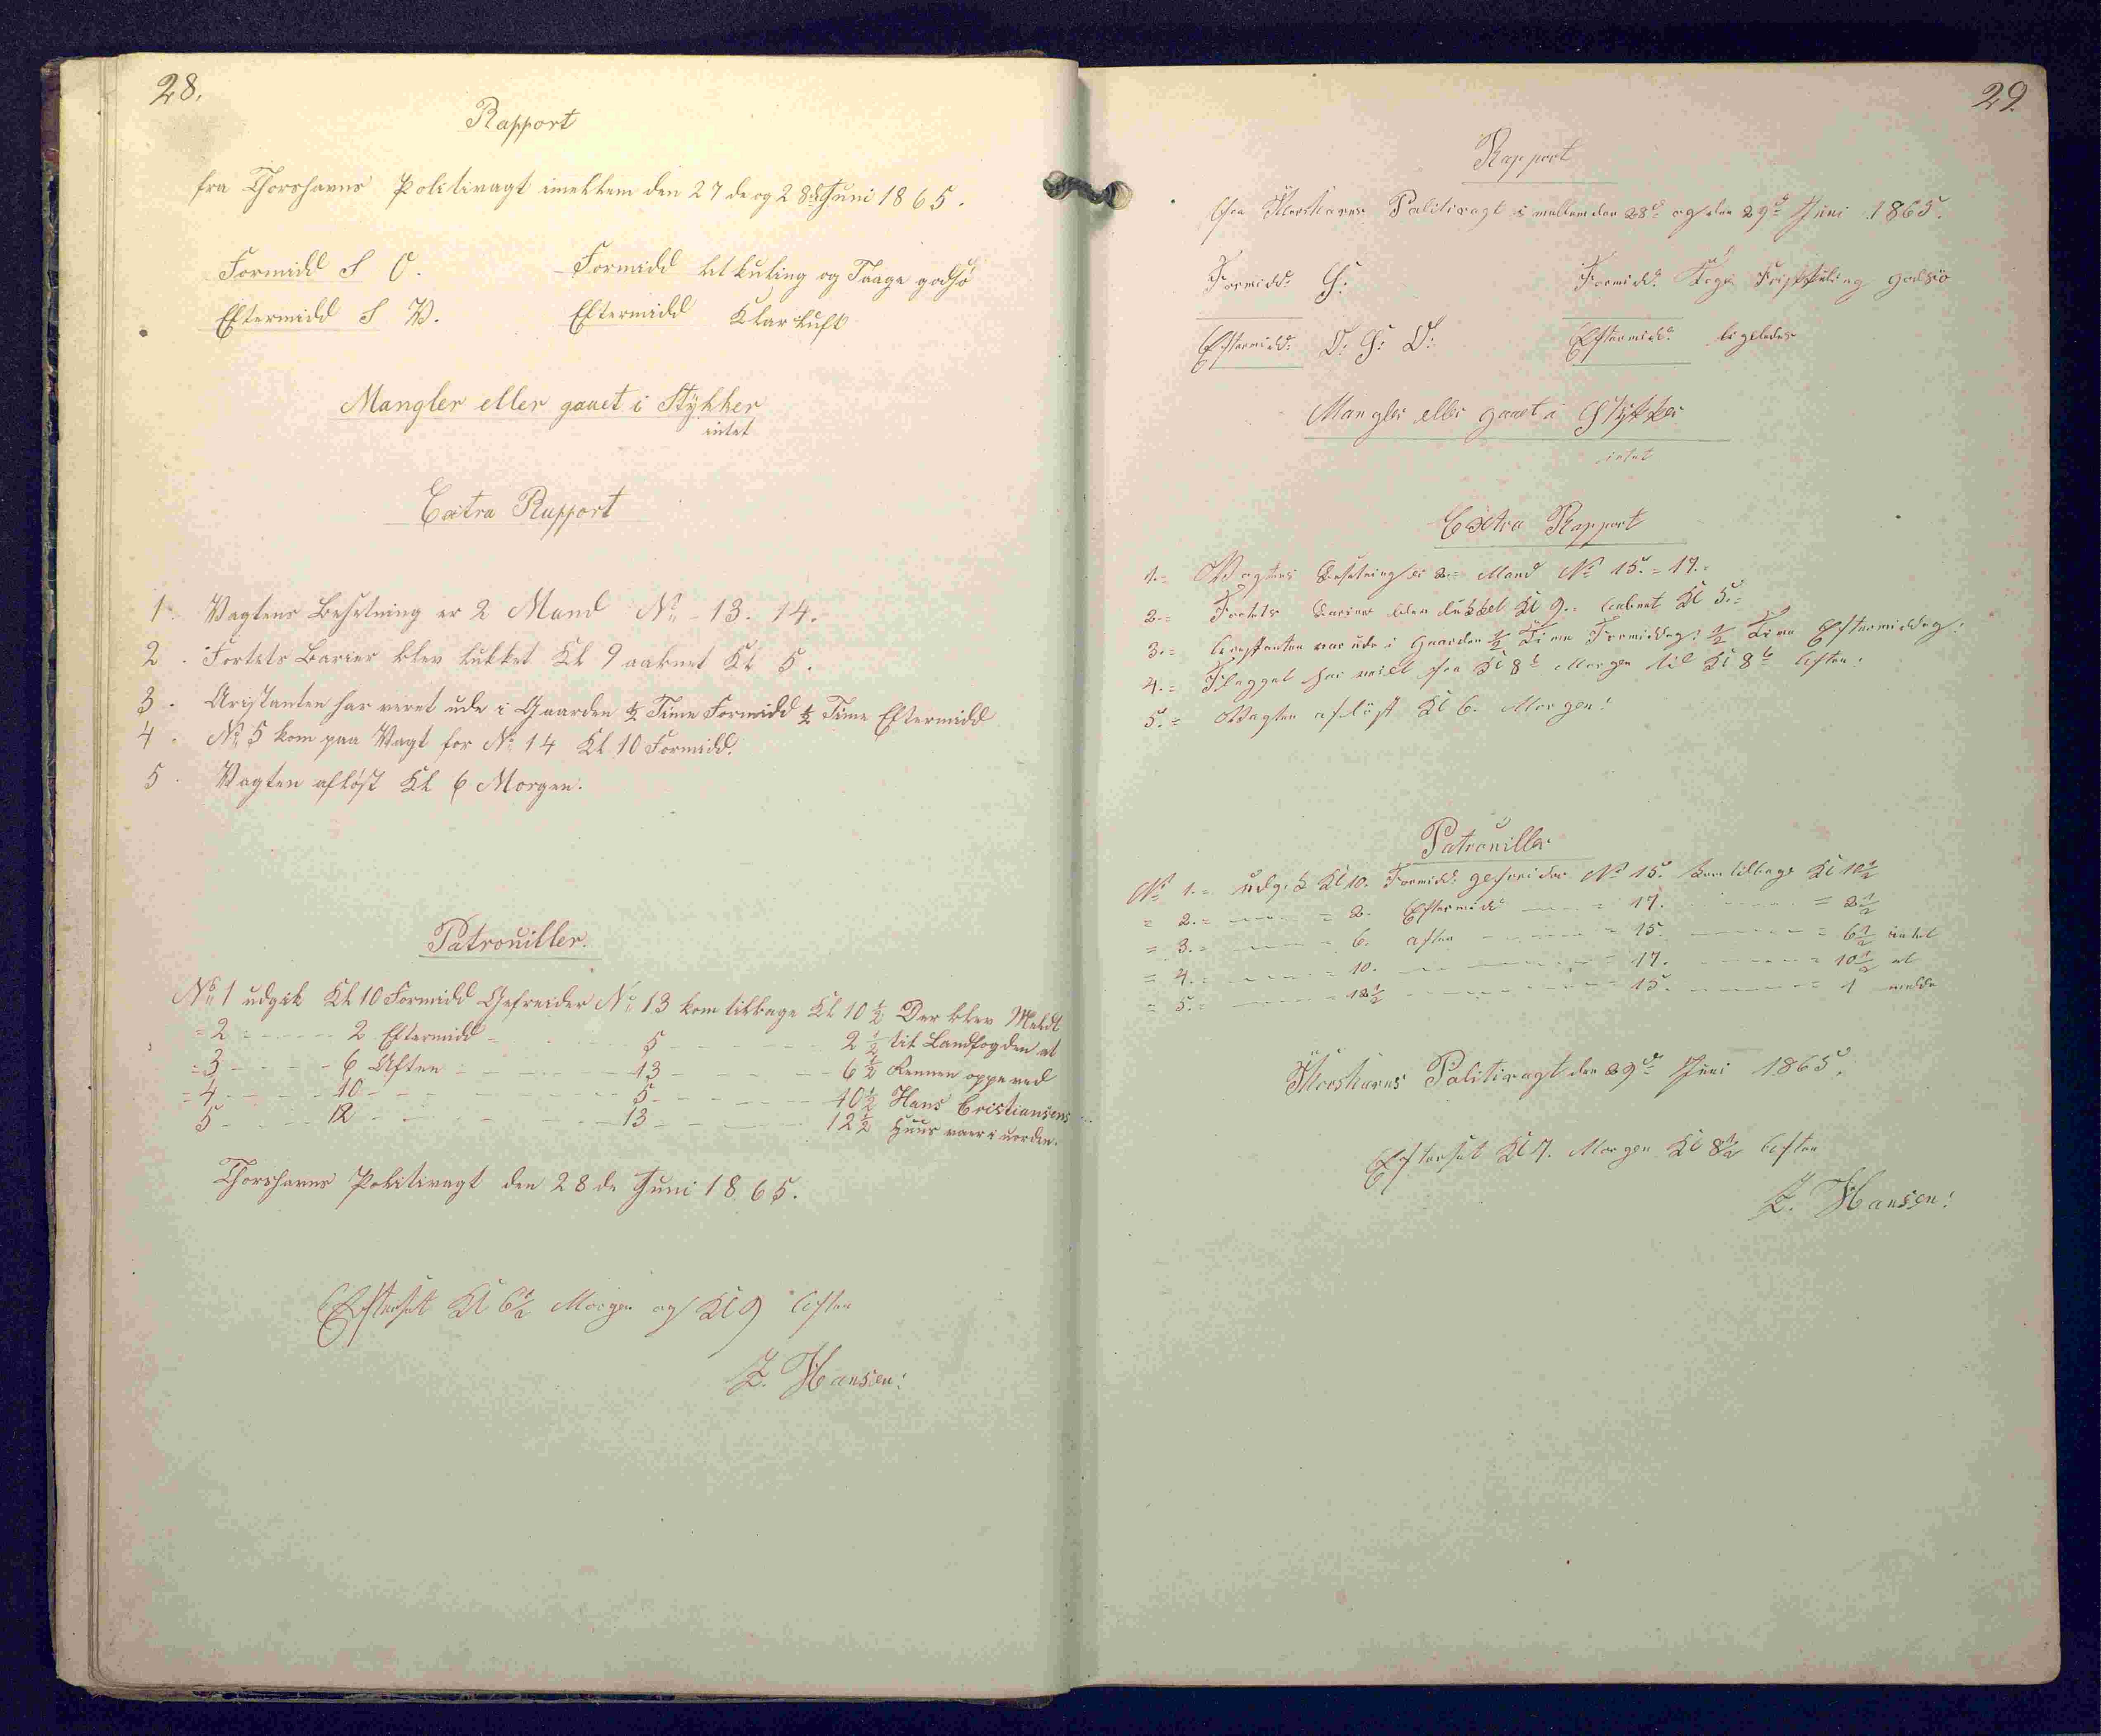 28.
Rapport
fra Thorshavns Politivagt imellem den 27 de og 28 de Juni 1865.
Formidd S O. Formidd let kuling og Taage godsø
Eftermidd S V. Eftermidd Klar Luft
Mangler eller gaaet i Stykker
intet
Extra Rapport
1. Vagtens Besetning er 2 Mand No 13. 14.
2. Fortets Barier blev lukket Kl 9 aabnet Kl 5.
3. Aristanten har veret ude i Gaarden ½ Time Formidd ½ Time Eftermidd
4. No 5 kom paa Vagt for No 14 Kl 10 Formidd.
5. Vagten afløst Kl 6 Morgen.
Patrouiller.
No 1 udgik Kl 10 Formidd Gefreider No 13 kom tilbage Kl 10 ½ Der blev Meldt
= 2 - - - 2 Eftermidd - - - 5 - - - 2 ½ til Landfogden at
= 3 - - - 6 Aften - - - 13 - - - 6 ½ Rennen oppe ved
= 4 - - - 10 - - - 5 - - - 10 ½ Hans Cristiansens
5 - - - 12 - - - 13 - - - 12 ½ Huus waer i uorden.
Thorshavns Politivagt den 28 de Juni 1865.
Efterset Kl 6½ Morgen og Kl 9 Aften
Z. Hansen:
29.
Rapport
fra Thorshavns Politivagt i mellem den 28de og den 29de Juni 1865.
Formidd: S: Formidd: Regn Friskkuling godsiø
Eftermidd: O: S: O: Eftermidd: ligeledes
Mangler eller gaaet i Stykker
intet
Extra Rapport
1.= Vagtens Besetning er 2= Mand No 15.= 17.=
2.= Fortets Barier blev lukket Kl 9.= aabnet Kl 5.=
3.= Arestanten var ude i Gaarden ½ Time Formiddag: ½ Time Eftermiddag:
4.= Flagget har veiet fra Kl 8 Morgen til Kl 8 Aften:
5.= Vagten afløst Kl 6. Morgen:
Patrouiller
No 1.= udgik Kl 10. Formidd: gefreider No 15. kom tilbage Kl 10½
= 2.= - - - = 2. Eftermidd: - - - = 17. - - - = 2½
= 3.= - - - = 6. aften - - - = 15. - - - = 6½ intet
= 4.= - - - = 10. - - - = 17. - - - = 10½ at
= 5.= - - - = 12½ - - - = 15. - - - = 1 melde
Thorshavns Politivagt den 29de Juni 1865.
Efterset Kl 7. Morgen Kl 8½ Aften
Z. Hansen: